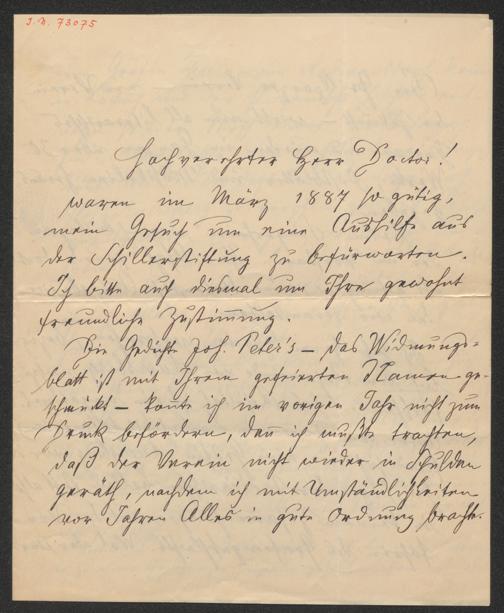 J. N. 73075
Hochverehrter Herr Doctor!
waren im März 1887 so gütig,
mein Gesuch um eine Aushilfe aus
der Schillerstiftung zu befürworten.
Ich bitte auch diesmal um Ihre gewohnt
freundliche Zustimmung.
Die Gedichte Joh. Peter's – das Widmungs=
blatt ist mit Ihrem gefeierten Namen ge-
schmückt – konnte ich im vorigen Jahr nicht zum
Druck befördern, denn ich mußte trachten,
daß der Verein nicht wieder in Schulden
geräth, nachdem ich mit Umständlichkeiten
vor Jahren Alles in gute Ordnung brachte.